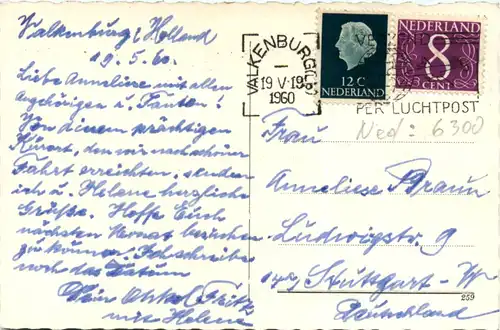 Valkenburg / Holland
19.5.60.
Liebe Anneliese mit allen
Angehörigen u. Tanten!
Von diesem prächtigen
Kurort, den wir nach schöner
Fahrt erreichten, senden
ich u. Helene herzliche
Grüße. Hoffe Euch
nächsten Monat besuchen
zu können. Ich schreibe
noch das Datum
Dein Onkel Fritz
mit Helene
VALKENBURG
19 V·19
1960
12 C
NEDERLAND
NEDERLAND
8
CENT
PER LUCHTPOST
Ned: 6300
Frau
Anneliese Braun
Ludwigstr. 9
Stuttgart-W
Deutschland
259